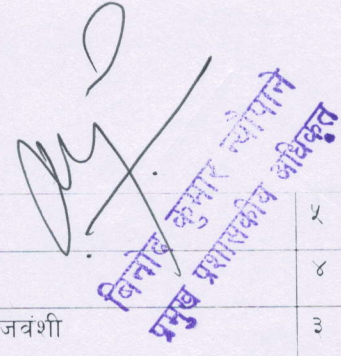 बिनोद कुमार न्यौपाने
प्रमुख प्रशासकीय अधिकृत
५
४
जवंशी ३